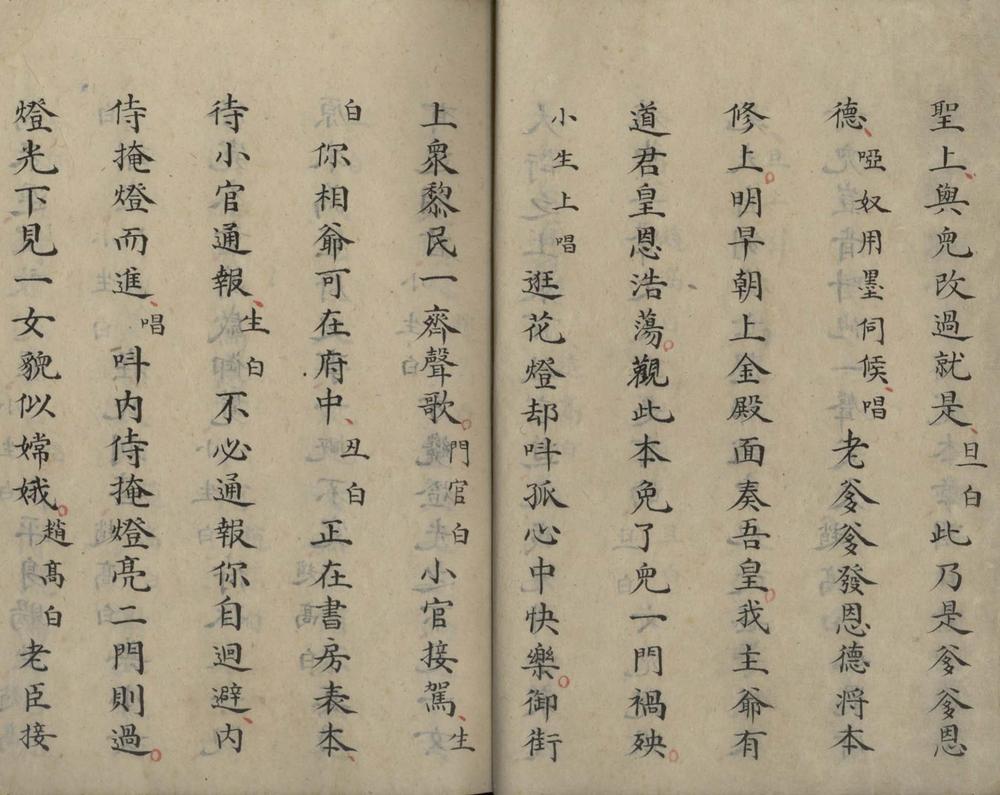 聖上與兒改過就是旦白此乃是爹爹恩
德啞奴用墨伺候唱老爹爹發恩德將本
修上明早朝上金殿面奏吾皇我主爺有
道君皇恩浩蕩觀此本免了兒一門禍殃
小生上唱逛花燈却呌孤心中快樂御街
上衆黎民一齊聲歌門官白小官接駕生
白你相爺可在府中丑白正在書房表本
待小官通報生白不必通報你自迴避內
侍掩燈而進唱呌內侍掩燈亮二門則過
燈光下見一女貌似嫦娥趙髙白老臣接